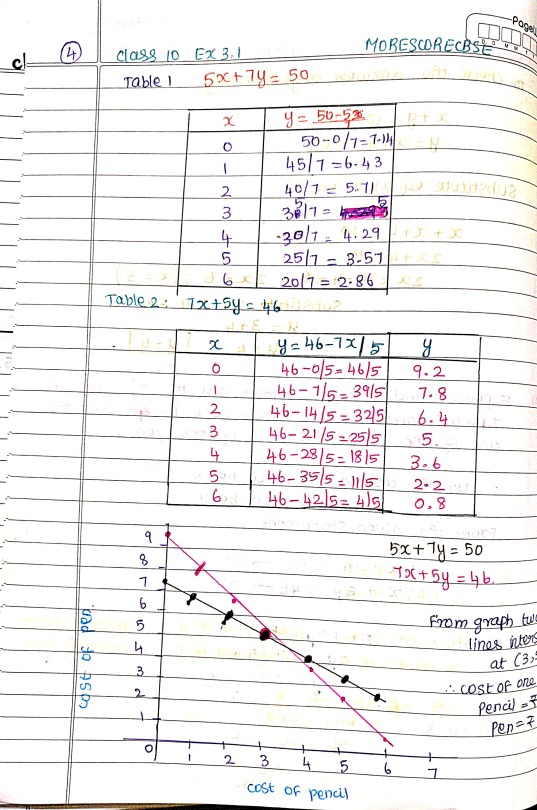 Page
c
4 class 10 Ex 3.1 MORESCORECBSE
Table 1 5x+7y=50
x y = 50-5x/7
0 50-0/7=7.14
1 45/7=6.43
2 40/7 = 5.71
3 35/7 = 5
4 30/7 = 4.29
5 25/7 = 3.57
6 20/7 = 2.86
Table 2: 7x+5y=46
x y=46-7x/5 y
0 46-0/5=46/5 9.2
1 46-7/5=39/5 7.8
2 46-14/5=32/5 6.4
3 46-21/5=25/5 5.
4 46-28/5=18/5 3.6
5 46-35/5=11/5 2.2
6 46-42/5=4/5 0.8
5x+7y=50
7x+5y=46.
From graph two
lines inters
at (3,5
∴ cost of one
pencil=₹
pen=₹
9
8
7
6
5
4
3
2
1
0 1 2 3 4 5 6 7
cost of pen
cost of pencil